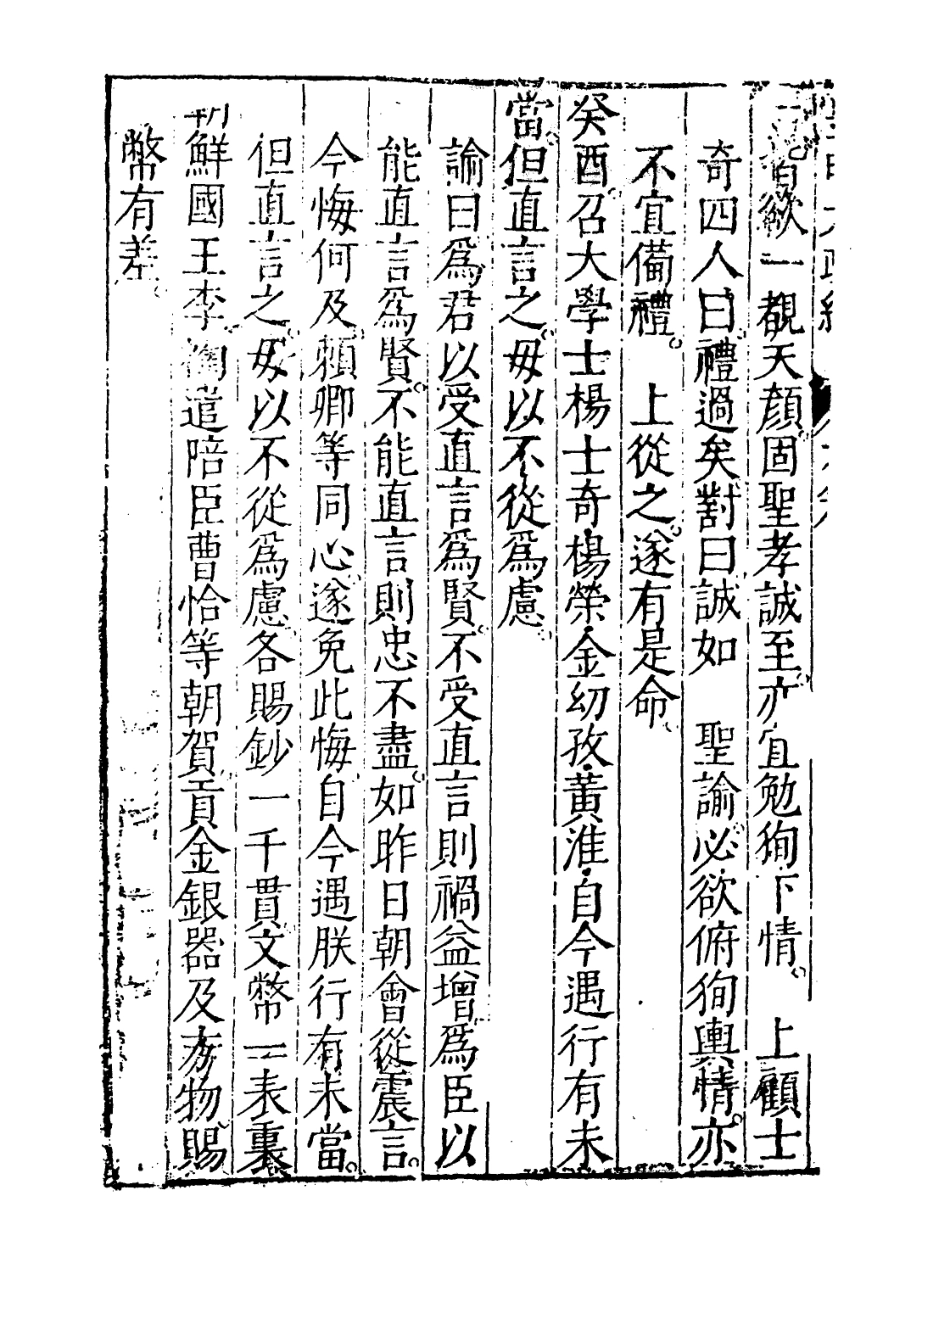 皆欲一覩天顏固聖孝誠至亦宜勉狥下情。 上顧士
奇四人曰禮過矣對曰誠如 聖諭必欲俯狥輿情亦
不宜備禮。 上從之遂有是命
癸酉召大學士楊士奇楊榮金幼孜黃淮自今遇行有未
當但直言之毋以不從爲慮。
諭曰爲君以受直言爲賢不受直言則禍益增爲臣以
能直言爲賢不能直言則忠不盡如昨日朝會從震言。
今悔何及賴卿等同心遂免此悔自今遇朕行有未當。
但直言之毋以不從爲慮各賜鈔一千貫文幣一表裏
朝鮮國王李祹遣陪臣曹恰等朝賀貢金銀器及方物賜
幣有差。